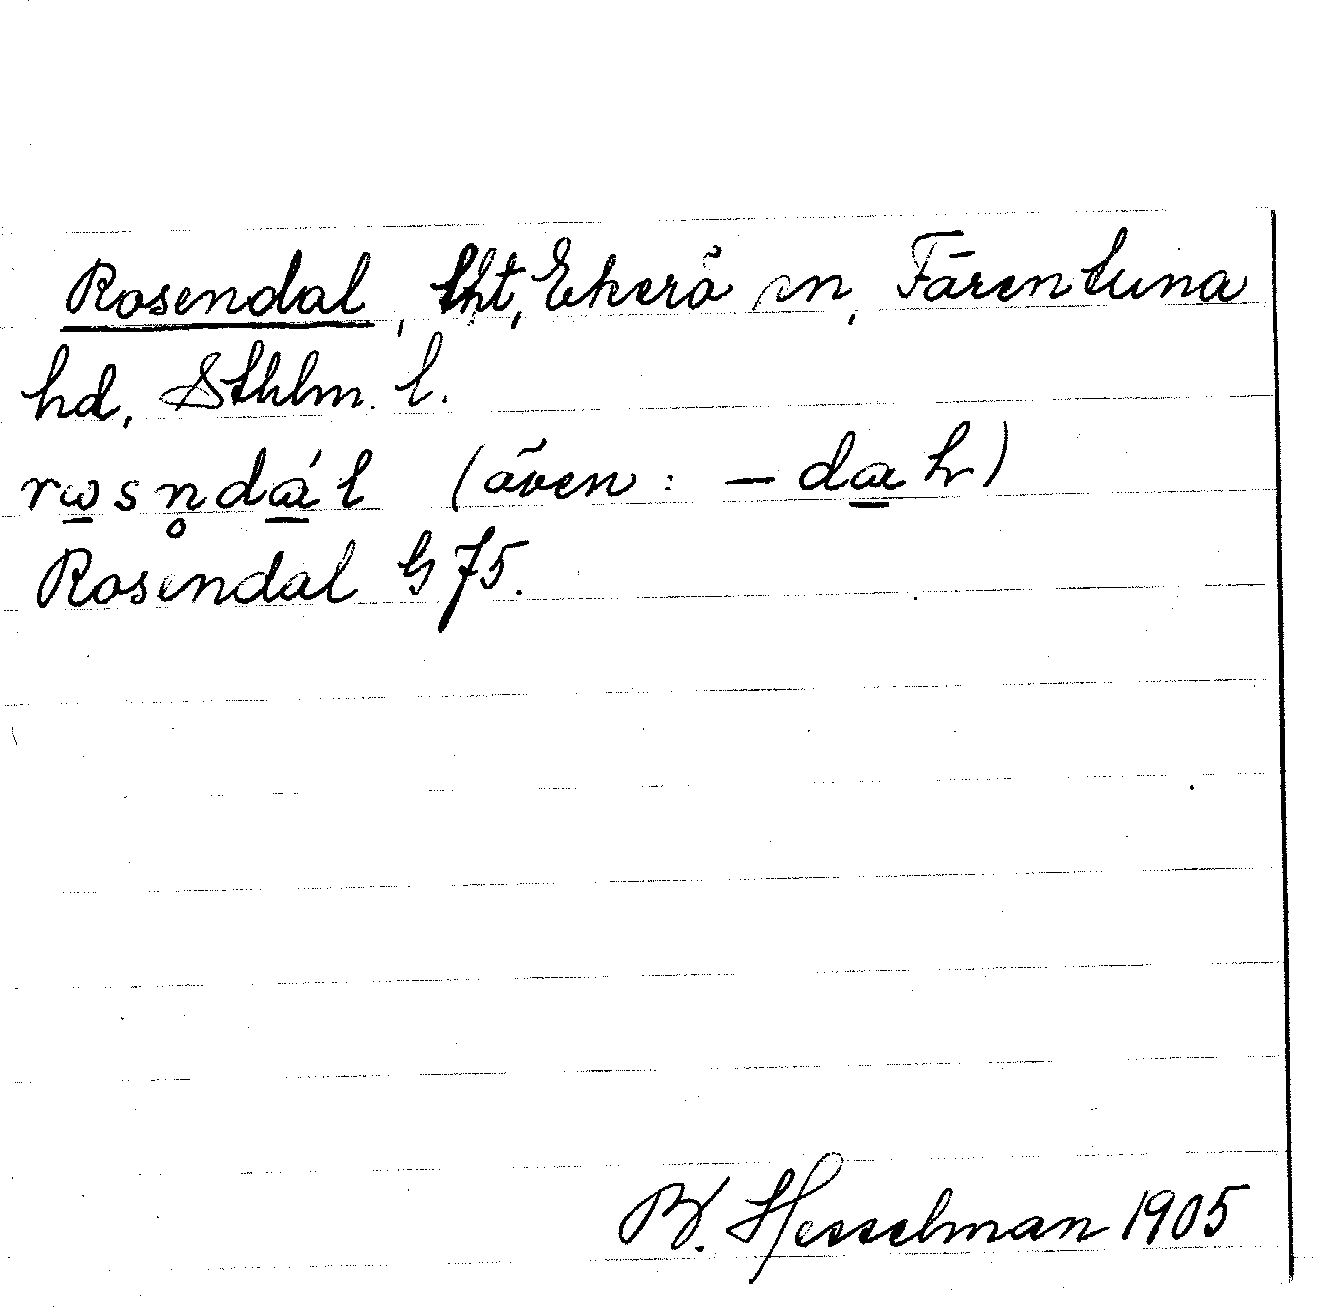 Rosendal, lht, Ekerö sn, Färentuna
hd, Sthlm. l.
rωsn̥dál (även: -dah)
Rosendal G 75.
B. Hesselman 1905